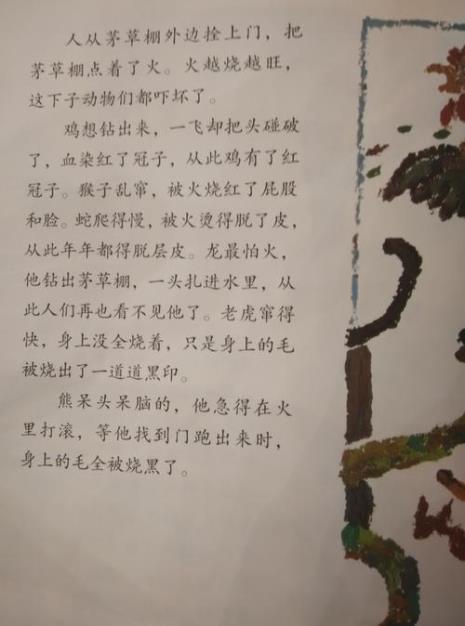 人从茅草棚外边拴上门，把
茅草棚点着了火。火越烧越旺，
这下子动物们都吓坏了。
鸡想钻出来，一飞却把头碰破
了，血染红了冠子，从此鸡有了红
冠子。猴子乱窜，被火烧红了屁股
和脸。蛇爬得慢，被火烫得脱了皮，
从此年年都得脱层皮。龙最怕火，
他钻出茅草棚，一头扎进水里，从
此人们再也看不见他了。老虎窜得
快，身上没全烧着，只是身上的毛
被烧出了一道道黑印。
熊呆头呆脑的，他急得在火
里打滚，等他找到门跑出来时，
身上的毛全被烧黑了。